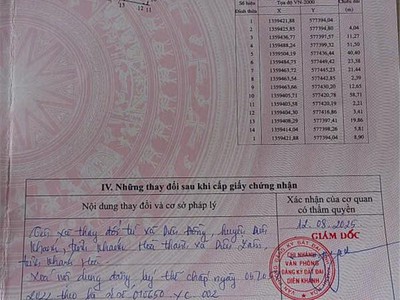 Số hiệu đỉnh thửa	Tọa độ VN-2000	Chiều dài (m)
X	Y
1	1359421,88	577394,04
2	1359425,88	577394,83	4,04
3	1359436,77	577397,57	11,27
4	1359488,24	577399,32	51,50
5	1359484,36	577439,53	40,40
6	1359464,75	577449,42	23,38
7	1359463,72	577445,23	21,44
8	1359463,54	577442,85	2,39
9	1359465,66	577430,20	12,65
10	1359405,56	577420,78	58,71
11	1359403,58	577420,19	2,21
12	1359404,40	577416,88	3,41
13	1359408,28	577397,41	19,86
14	1359414,08	577398,26	5,81
1	1359421,88	577394,04	8,90
12 11
13 10
IV. Những thay đổi sau khi cấp giấy chứng nhận
Nội dung thay đổi và cơ sở pháp lý
Xác nhận của cơ quan có thẩm quyền
thay đổi từ xã Diên Đồng, huyện Diên
Khánh, tỉnh Khánh Hòa thành xã Diên
tỉnh Khánh Hòa
Xóa nội dung đăng ký thế chấp ngày 06.
theo hồ sơ số 010650.XC.002
12-08-2025
GIÁM ĐỐC
CHI NHÁNH
VĂN PHÒNG
ĐĂNG KÝ ĐẤT ĐAI
DIÊN KHÁNH